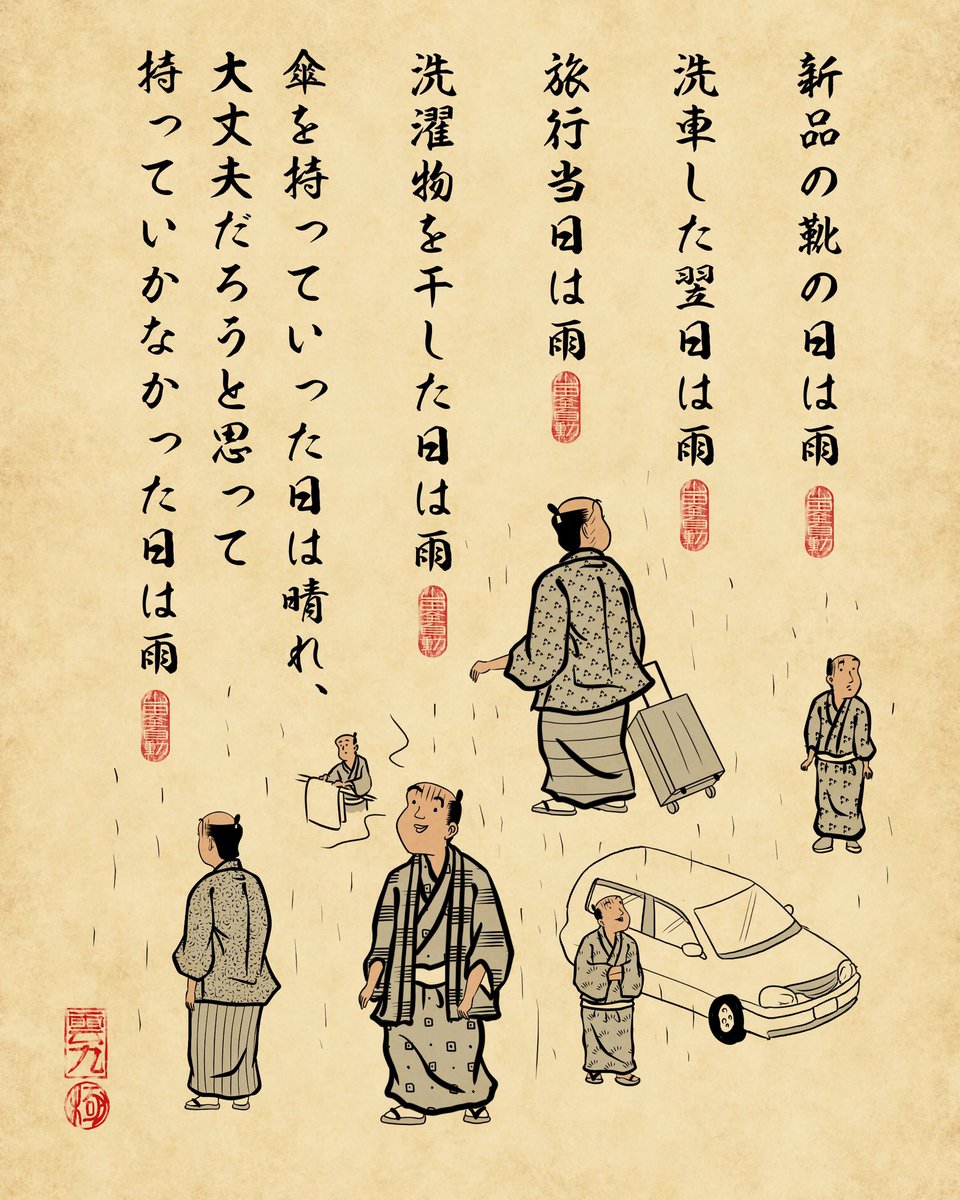 新品の靴の日は雨
洗車した翌日は雨
旅行当日は雨
洗濯物を干した日は雨
傘を持っていった日は晴れ、
大丈夫だろうと思って
持っていかなかった日は雨